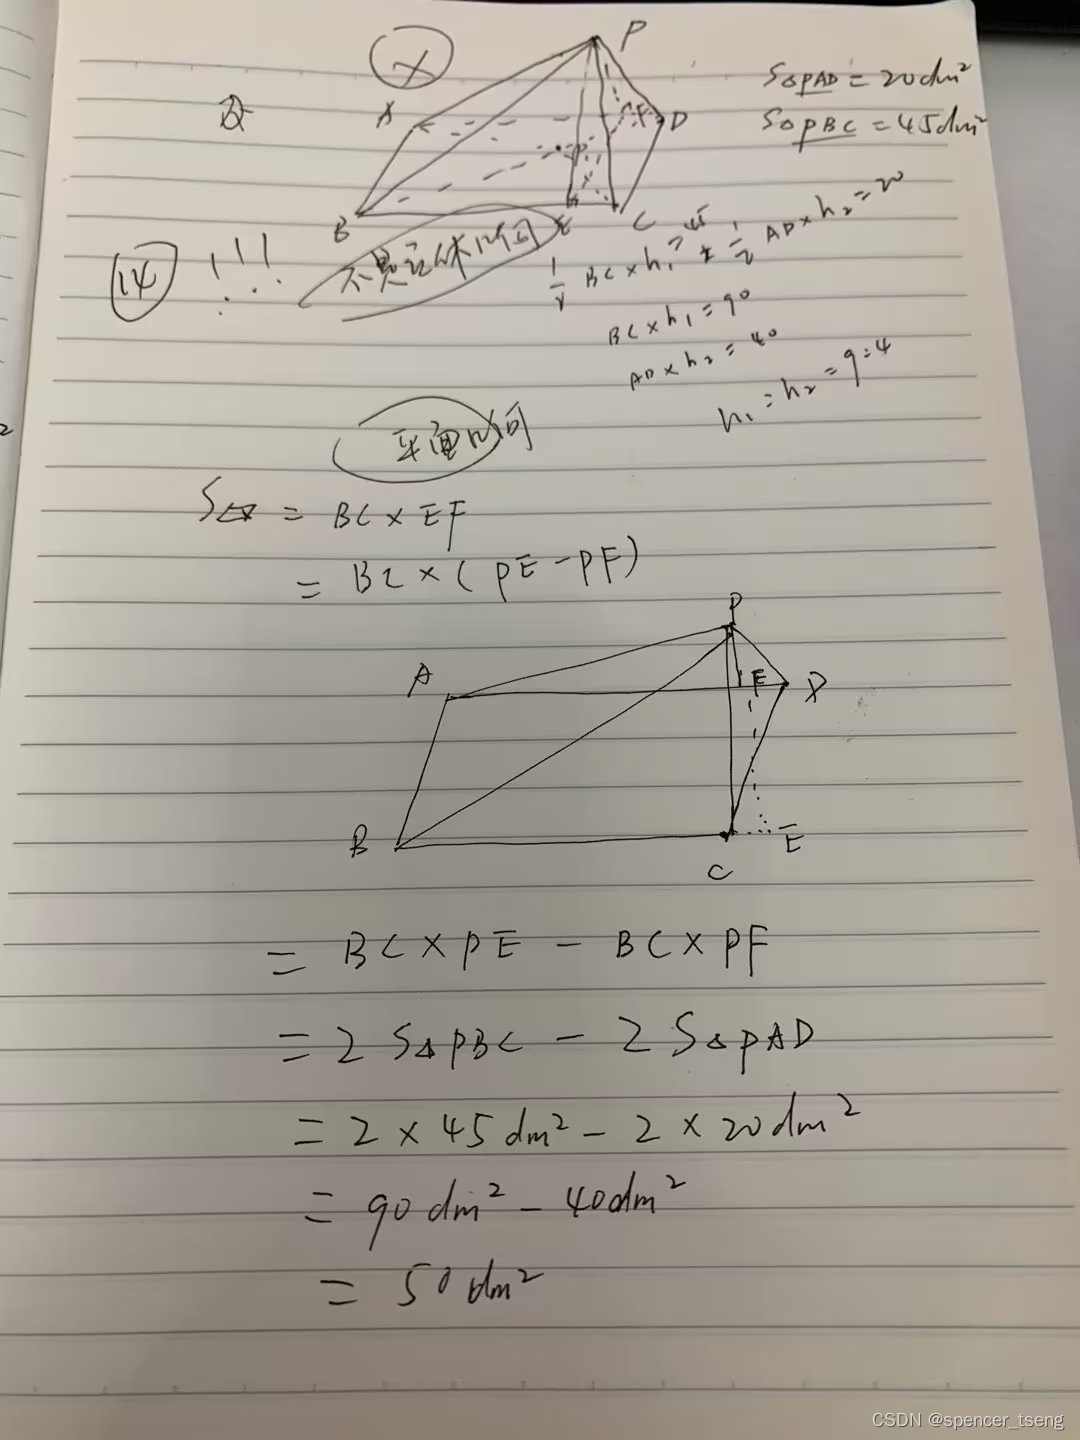 P
A
D
F
B
E
C
S△PAD = 20dm²
S△PBC = 45dm²
14 !!!
不是立体几何
1/2 BC×h₁=45 1/2 AD×h₂=20
BC×h₁=90
AD×h₂=40
h₁:h₂=9:4
平面几何
S▱ = BC×EF
= BC×(PE-PF)
P
A
F
D
B
C
E
= BC×PE - BC×PF
= 2S△PBC - 2S△PAD
= 2×45dm² - 2×20dm²
= 90dm² - 40dm²
= 50dm²
CSDN @spencer_tseng